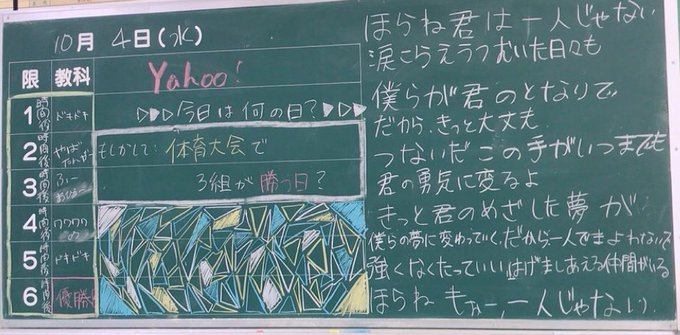 10月 4日(水)
限 教科
Yahoo!
1 時間後 ドキドキ
▷▷▷今日は何の日?▷▷▷
2 時間後 やばたにえん
もしかして: 体育大会で
3 時間後 ふぃー
3組が勝つ日?
4 時間後 ワクワク
5 時間後 ドキドキ
6 時間後 優勝
ほらね君は一人じゃない
涙こらえうつむいた日々も
僕らが君のとなりで
だから、きっと大丈夫
つないだこの手がいつまでも
君の勇気に変るよ
きっと君のめざした夢が
僕らの夢に変わっていく、だから一人でまよわないで
強くなくたっていい、はげましあえる仲間がいる
ほらね もぉー、一人じゃない